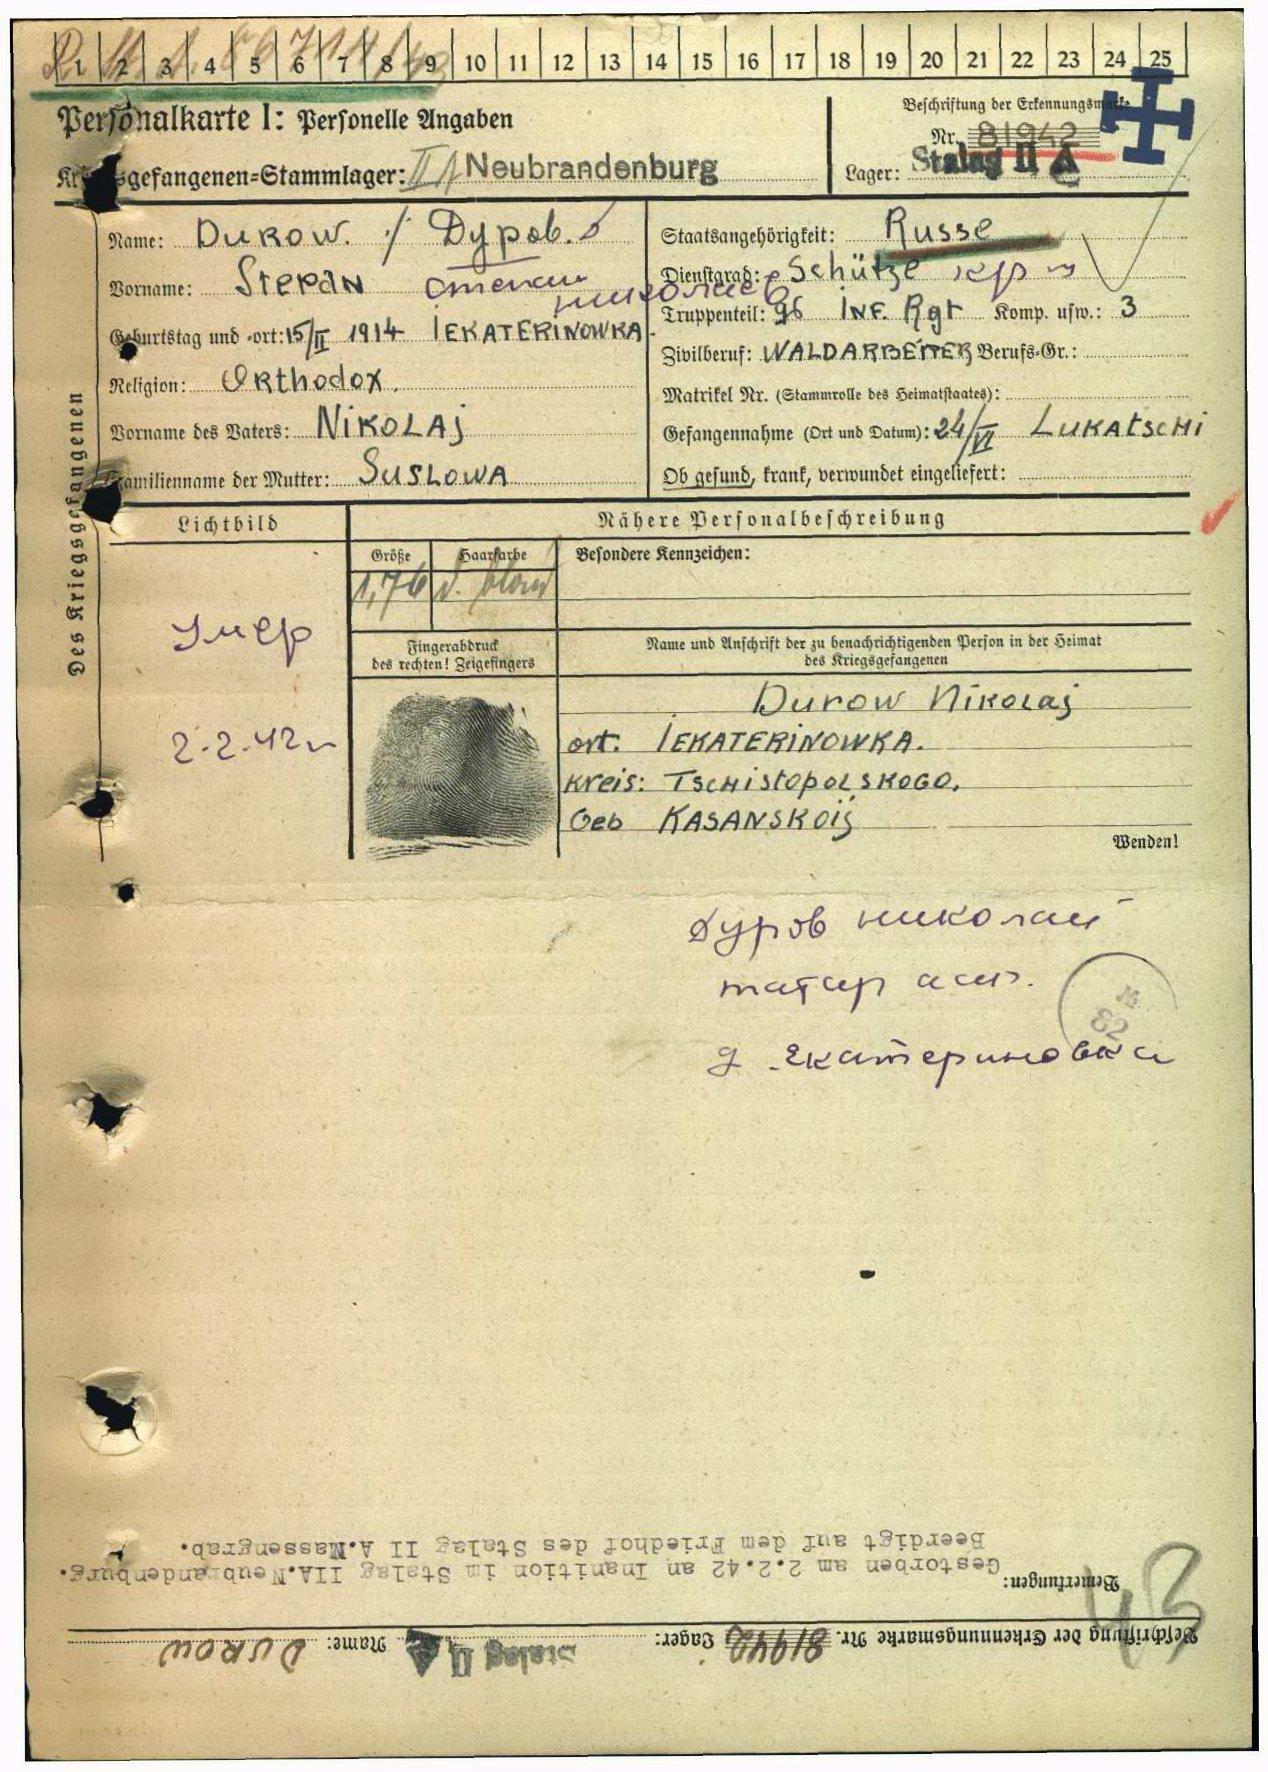 1 2 3 4 5 6 7 8 9 10 11 12 13 14 15 16 17 18 19 20 21 22 23 24 25
Personalkarte I: Personelle Angaben
Kriegsgefangenen-Stammlager: II A Neubrandenburg
Beschriftung der Erkennungsmarke
Nr. 81942
Lager: Stalag II A
Des Kriegsgefangenen
Name: Durow. / Дуров.
Vorname: Stepan Степан
Николаев
Geburtstag und -ort: 15/II 1914 IEKATERINOWKA
Religion: Orthodox.
Vorname des Vaters: NIKOLAJ
Familienname der Mutter: SUSLOWA
Staatsangehörigkeit: Russe
Dienstgrad: Schütze кр-ц
Truppenteil: 96 INF. Rgt Komp. usw.: 3
Zivilberuf: WALDARBEITER Berufs-Gr.:
Matrikel Nr. (Stammrolle des Heimatstaates):
Gefangennahme (Ort und Datum): 24/VI LUKATSCHI
Ob gesund, krank, verwundet eingeliefert:
Lichtbild
Nähere Personalbeschreibung
Größe
1,76
Haarfarbe
d. blond
Besondere Kennzeichen:
умер
2.2.42г
Fingerabdruck
des rechten! Zeigefingers
Name und Anschrift der zu benachrichtigenden Person in der Heimat
des Kriegsgefangenen
Durow Nikolaj
ort: IEKATERINOWKA.
Kreis: TSCHISTOPOLSKOGO.
Geb KASANSKOIJ
Wenden!
Дуров Николай
татар асср.
№
82
д. Екатериновка
Beschriftung der Erkennungsmarke Nr. 81942 Lager: Stalag II A Name: DUROW
Bemerkungen: Gestorben am 2.2.42 an Inanition im Stalag IIA.Neubrandenburg.
Beerdigt auf dem Friedhof des Stalag II A.Massengrab.
43